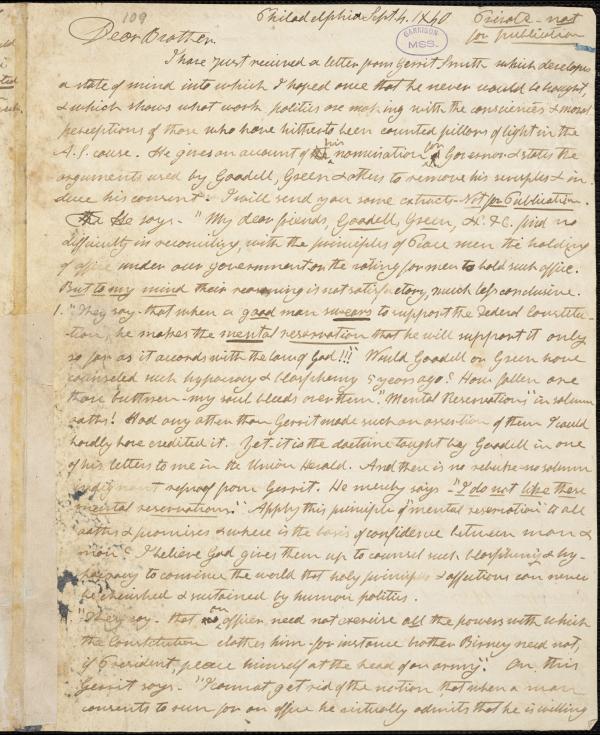 109
Philadelphia Sept 4. 1840
Private - not
for publication
GARRISON
MSS.
Dear Brother.
I have just received a letter from Gerrit Smith which developes
a state of mind into which I hoped once that he never would be brought,
& which shows what work politics are making with the consciences & moral
perceptions of those who have hitherto been counted pillars of light in the
A.S. cause. He gives an account of his nomination for Governor & states the
arguments used by Goodell, Green & others to remove his scruples & in-
duce his consent. I will send you some extracts - Not for Publication.
He says - "My dear friends, Goodell, Green, &c. &c. find no
difficulty in reconciling, with the principles of Peace men the holding
of office under our government or the voting for men to hold such office.
But to my mind their reasoning is not satisfactory, much less conclusive.
1. "They say - that when a good man swears to support the Federal Constitu-
-tion, he makes the mental reservation that he will support it only
so far as it accords with the law of God!!!" Would Goodell or Green have
counseled such hypocrisy & blasphemy 5 years ago? How fallen are
those brethren - my soul bleeds over them! "Mental Reservations" in solemn
oaths! Had any other than Gerrit made such an assertion of them I could
hardly have credited it. Yet it is the doctrine taught by Goodell in one
of his letters to me in the Union Herald. And there is no rebuke - no solemn
indignant reproof from Gerrit. He merely says - "I do not like these
mental reservations." Apply this principle of "mental reservation" to all
oaths & promises & where is the basis of confidence between man &
man? I believe God gives them up to counsel such blasphemy & hy-
pocrisy to convince the world that holy principles & affections can never
be cherished & sustained by human politics.
"They say - that an officer need not exercise all the powers with which
the Constitution clothes him - for instance brother Birney need not,
if President, place himself at the head of an army." On this
Gerrit says - "I cannot get rid of the notion that when a man
consents to run for an office he virtually admits that he is willing